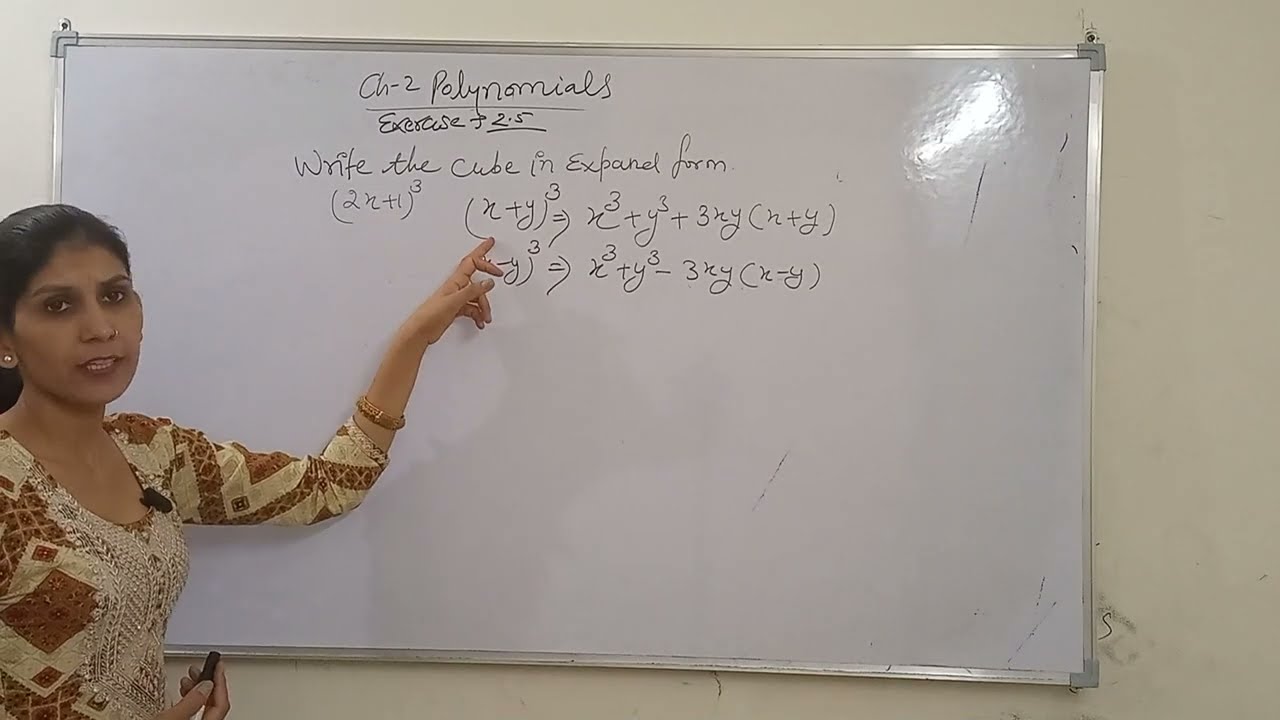 Ch-2 Polynomials
Exercise → 2.5
Write the cube in Expand form.
(2x+1)³ (x+y)³ ⇒ x³+y³+3xy(x+y)
-y)³ ⇒ x³+y³-3xy(x-y)
S